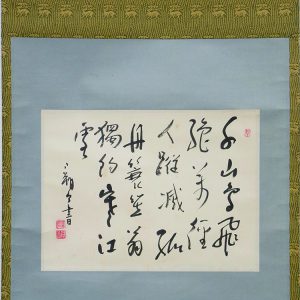 千山鳥飛
絶萬徑
人蹤滅孤
舟簑笠翁
獨釣寒江
雪